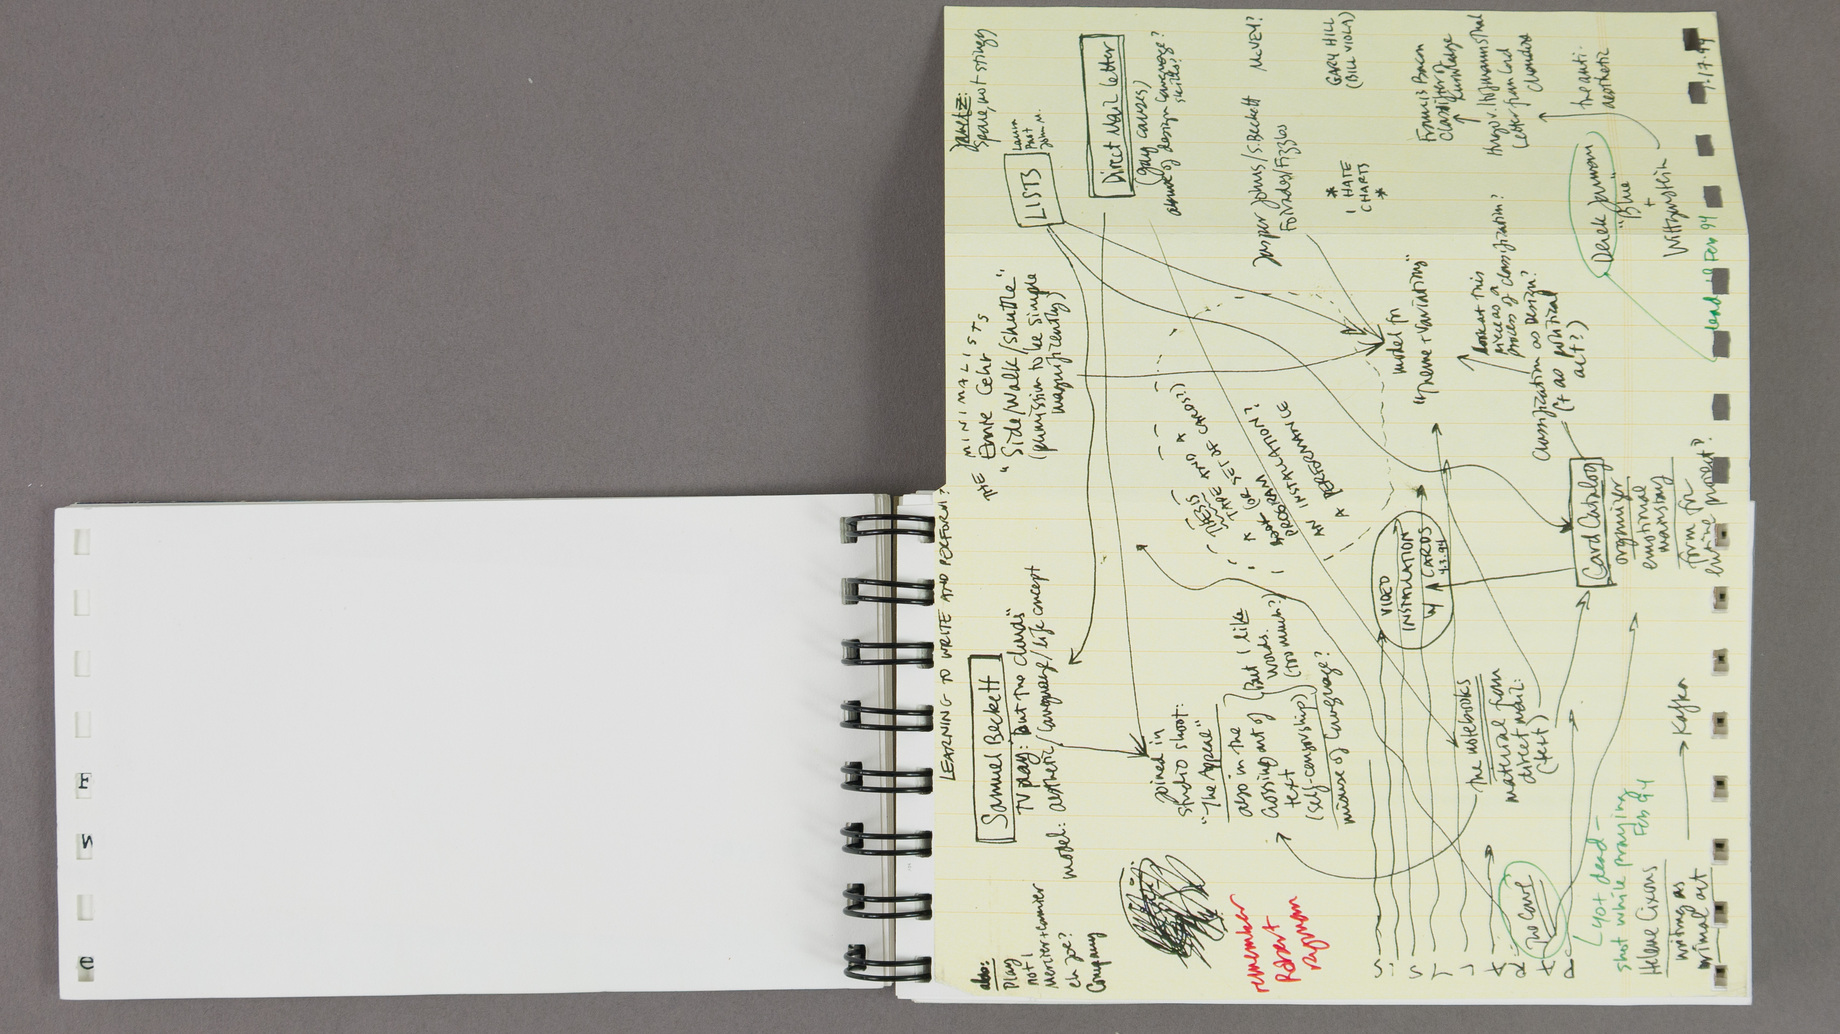 LEARNING TO WRITE AND PERFORM?
also:
Play
not I
Mercier + Camier
eh Joe?
Company
Samuel Beckett
TV play: but the clouds"
model: aesthetic/language/life concept
THE MINIMALISTS
Ernie Gehr
"Side/Walk/Shuttle"
(permission to be simple
magnificently)
spare, not stingy
LISTS
Laura
Part
John M.
Direct Mail Letter
(gay causes)
of design language?
skills?
joined in
studio shoot:
"The Appeal"
also in the
crossing out of
text
(self-censorship)
misuse of language?
(But I like
words.
(too much?)
THESIS
TAPE AND A
SET OF CARDS?)
* (OR
PROGRAM
INSTALLATION?
AN INSTALLATION
A PERFORMANCE
Jasper Johns/S. Beckett
Foirades/Fizzles
MCVEY?
GARY HILL
(BILL VIOLA)
*
I HATE
CHARTS
*
model for
"Theme + Variation"
remember
Robert
Ryman
VIDEO
INSTALLATION
W/ CARDS
4.3.94
Francis Bacon
Classifier of
Knowledge
Hugo v. Hofmannsthal
Letter from Lord
Chandos
the anti-
aesthetic
look at this
piece as a
process of classification?
Classification as design?
(+ as political
act?)
Derek Jarman
"Blue"
+
Wittgenstein
dead Feb 94
The notebooks
material from
direct mail:
(text)
Card Catalog
organizer
emotional
mainstay
form for
entire project?
The Cave
(got dead -
shot while praying
Feb 94
Helene Cixous
writing as
primal act
Kafka
.17.94